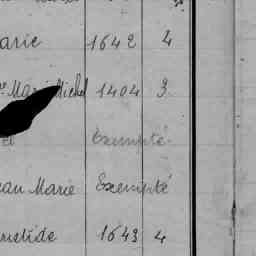 arie 1642 4
Marie Michel 1404 3
Exempté
ean Marie Exempté
1643 4